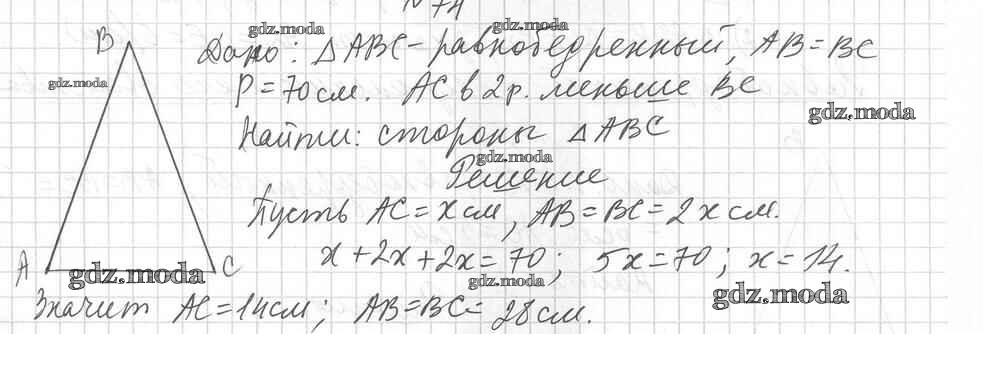 № 74
B gdz.moda gdz.moda
Дано: △ABC - равнобедренный, AB = BC
gdz.moda P = 70 см. AC в 2 р. меньше BC
gdz.moda
Найти: стороны △ABC
gdz.moda
Решение
Пусть AC = x см, AB = BC = 2x см.
x + 2x + 2x = 70; 5x = 70; x = 14.
A gdz.moda C gdz.moda gdz.moda
Значит AC = 14 см; AB = BC = 28 см.